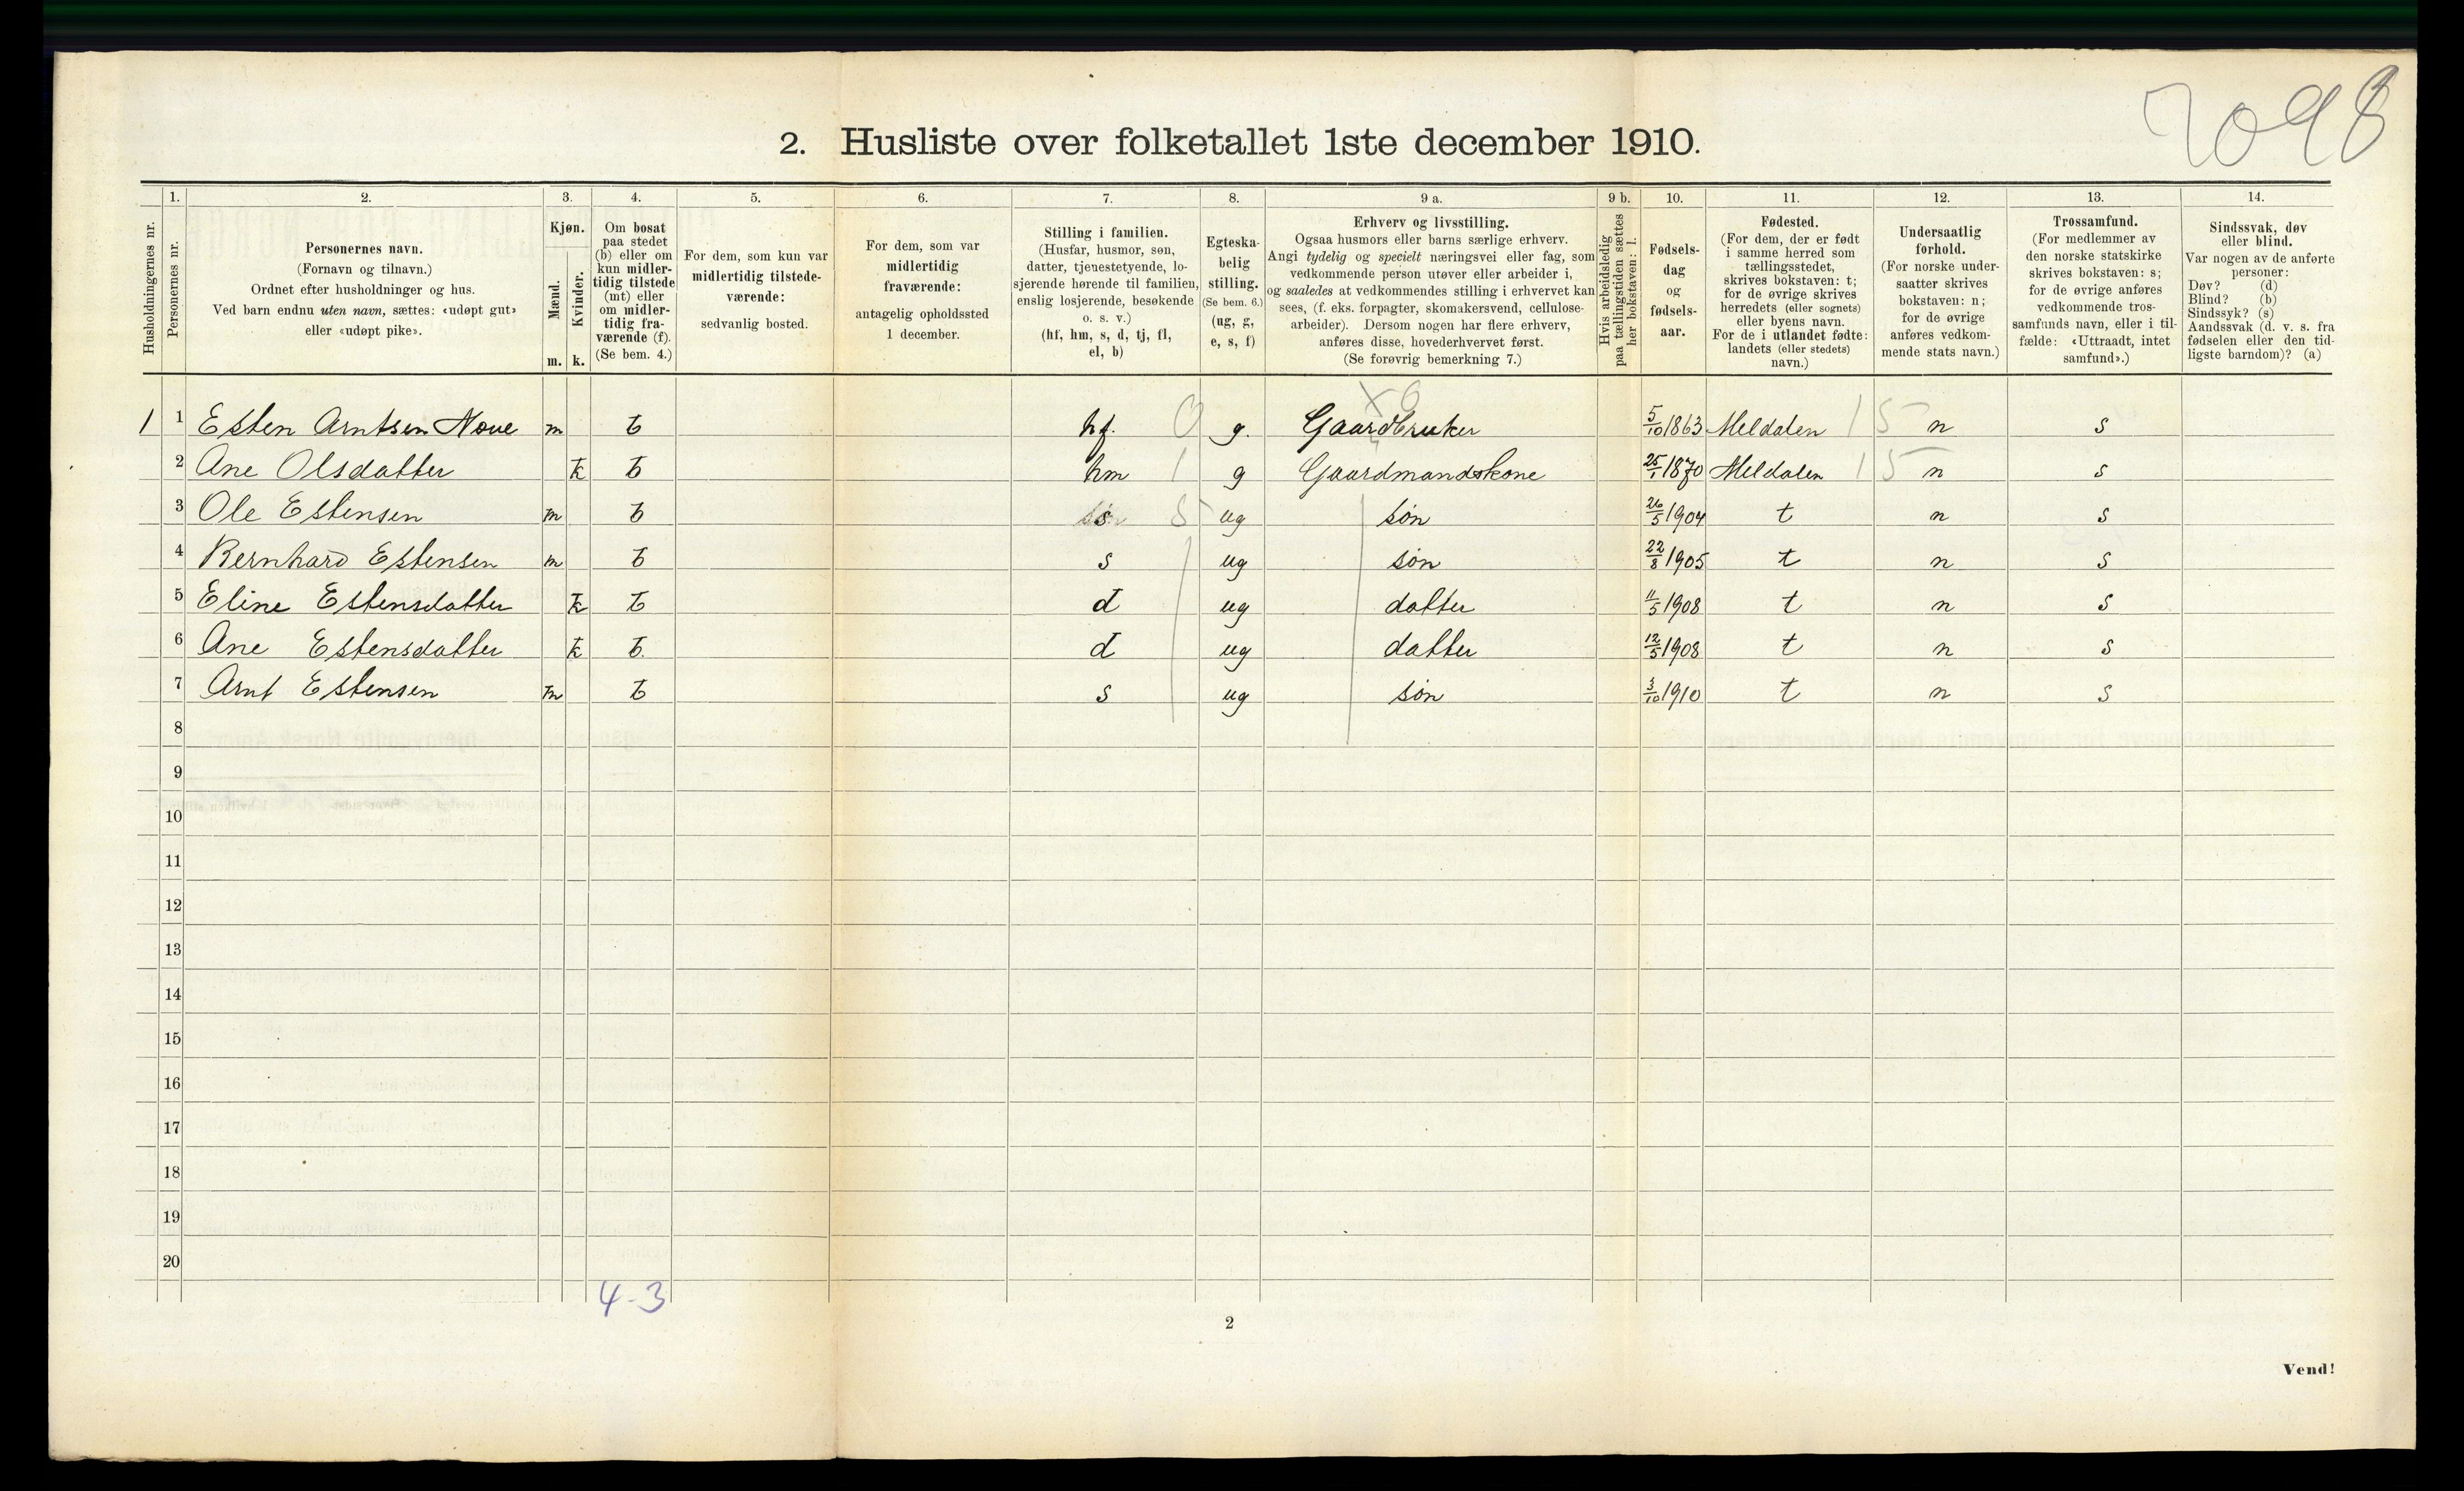 7098
2. Husliste over folketallet 1ste december 1910.
Husholdningernes nr.
1.
Personernes nr.
2.
Personernes navn.
(Fornavn og tilnavn.)
Ordnet efter husholdninger og hus.
Ved barn endnu uten navn, sættes: «udøpt gut»
eller «udøpt pike».
3.
Kjøn.
Mænd.
m.
Kvinder.
k.
4.
Om bosat
paa stedet
(b) eller om
kun midler-
tidig tilstede
(mt) eller
om midler-
tidig fra-
værende (f).
(Se bem. 4.)
5.
For dem, som kun var
midlertidig tilstede-
værende:
sedvanlig bosted.
6.
For dem, som var
midlertidig
fraværende:
antagelig opholdssted
1 december.
7.
Stilling i familien.
(Husfar, husmor, søn,
datter, tjenestetyende, lo-
sjerende hørende til familien,
enslig losjerende, besøkende
o. s. v.)
(hf, hm, s, d, tj, fl,
el, b)
8.
Egteska-
belig
stilling.
(Se bem. 6.)
(ug, g,
e, s, f)
9 a.
Erhverv og livsstilling.
Ogsaa husmors eller barns særlige erhverv.
Angi tydelig og specielt næringsvei eller fag, som
vedkommende person utøver eller arbeider i,
og saaledes at vedkommendes stilling i erhvervet kan
sees, (f. eks. forpagter, skomakersvend, cellulose-
arbeider). Dersom nogen har flere erhverv,
anføres disse, hovederhvervet først.
(Se forøvrig bemerkning 7.)
9 b.
Hvis arbeidsledig
paa tællingstiden sættes
her bokstaven: l.
10.
Fødsels-
dag
og
fødsels-
aar.
11.
Fødested.
(For dem, der er født
i samme herred som
tællingsstedet,
skrives bokstaven: t;
for de øvrige skrives
herredets (eller sognets)
eller byens navn.
For de i utlandet fødte:
landets (eller stedets)
navn.)
12.
Undersaatlig
forhold.
(For norske under-
saatter skrives
bokstaven: n;
for de øvrige
anføres vedkom-
mende stats navn.)
13.
Trossamfund.
(For medlemmer av
den norske statskirke
skrives bokstaven: s;
for de øvrige anføres
vedkommende tros-
samfunds navn, eller i til-
fælde: «Uttraadt, intet
samfund».)
14.
Sindssvak, døv
eller blind.
Var nogen av de anførte
personer:
Døv? (d)
Blind? (b)
Sindssyk? (s)
Aandssvak (d. v. s. fra
fødselen eller den tid-
ligste barndom)? (a)
X 0
1 1 Esten Arntsen Moue m b hf. 0 g. Gaardbruker 5/10 1863 Meldalen 15 n s
2 Ane Olsdatter k b hm 1 g Gaardmandskone 25/1 1870 Meldalen 15 n s
3 Ole Estensen m b s 5 ug søn 26/5 1904 t n s
4 Bernhard Estensen m b s ug søn 22/8 1905 t n s
5 Eline Estensdatter k b d ug datter 11/5 1908 t n s
6 Ane Estensdatter k b. d ug datter 12/5 1908 t n s
7 Arnt Estensen m b s ug søn 3/10 1910 t n s
8
9
10
11
12
13
14
15
16
17
18
19
20
4-3
2
Vend!